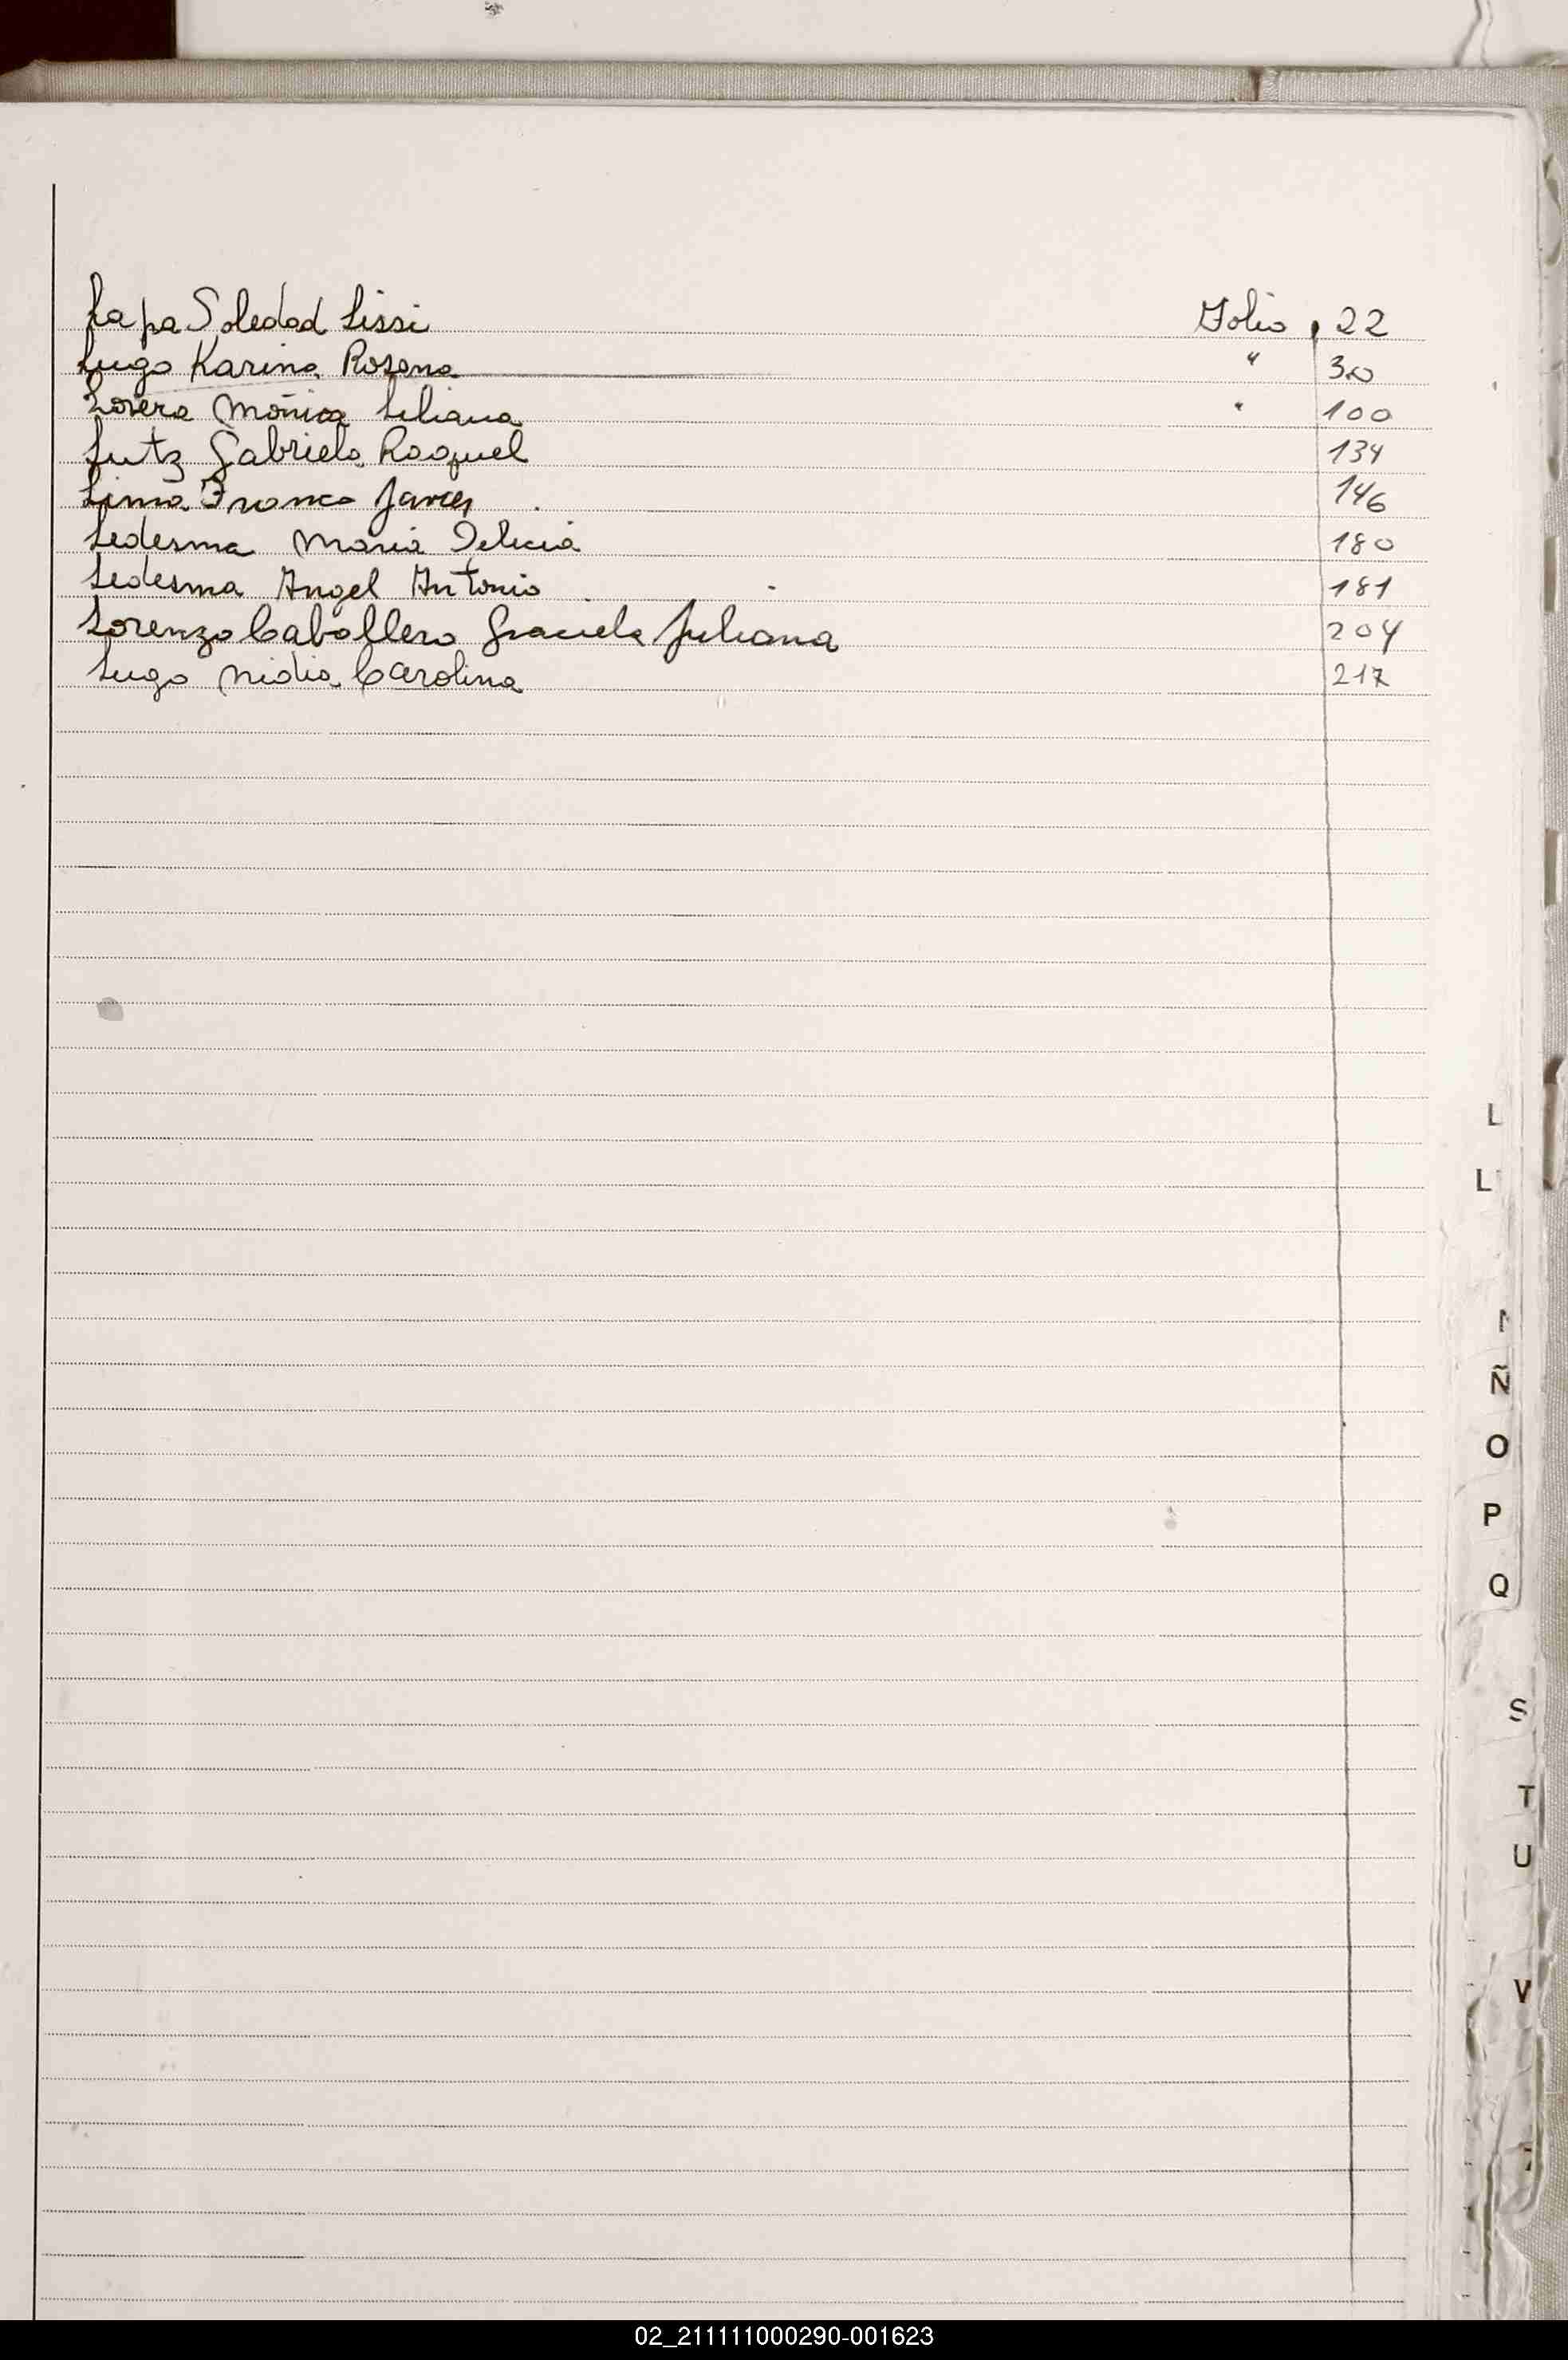 Lapa Soledad Lissi Folio 22
Lugo Karina Rosana " 30
Lovera Mónica Liliana " 100
Lutz Gabriela Raquel 134
Lima Franco Javier 146
Ledesma María Delicia 180
Ledesma Angel Antonio 181
Lorenzo Caballero Graciela Juliana 204
Lugo Nidia Carolina 217
L
L
Ñ
O
P
Q
S
T
U
V
02_211111000290-001623